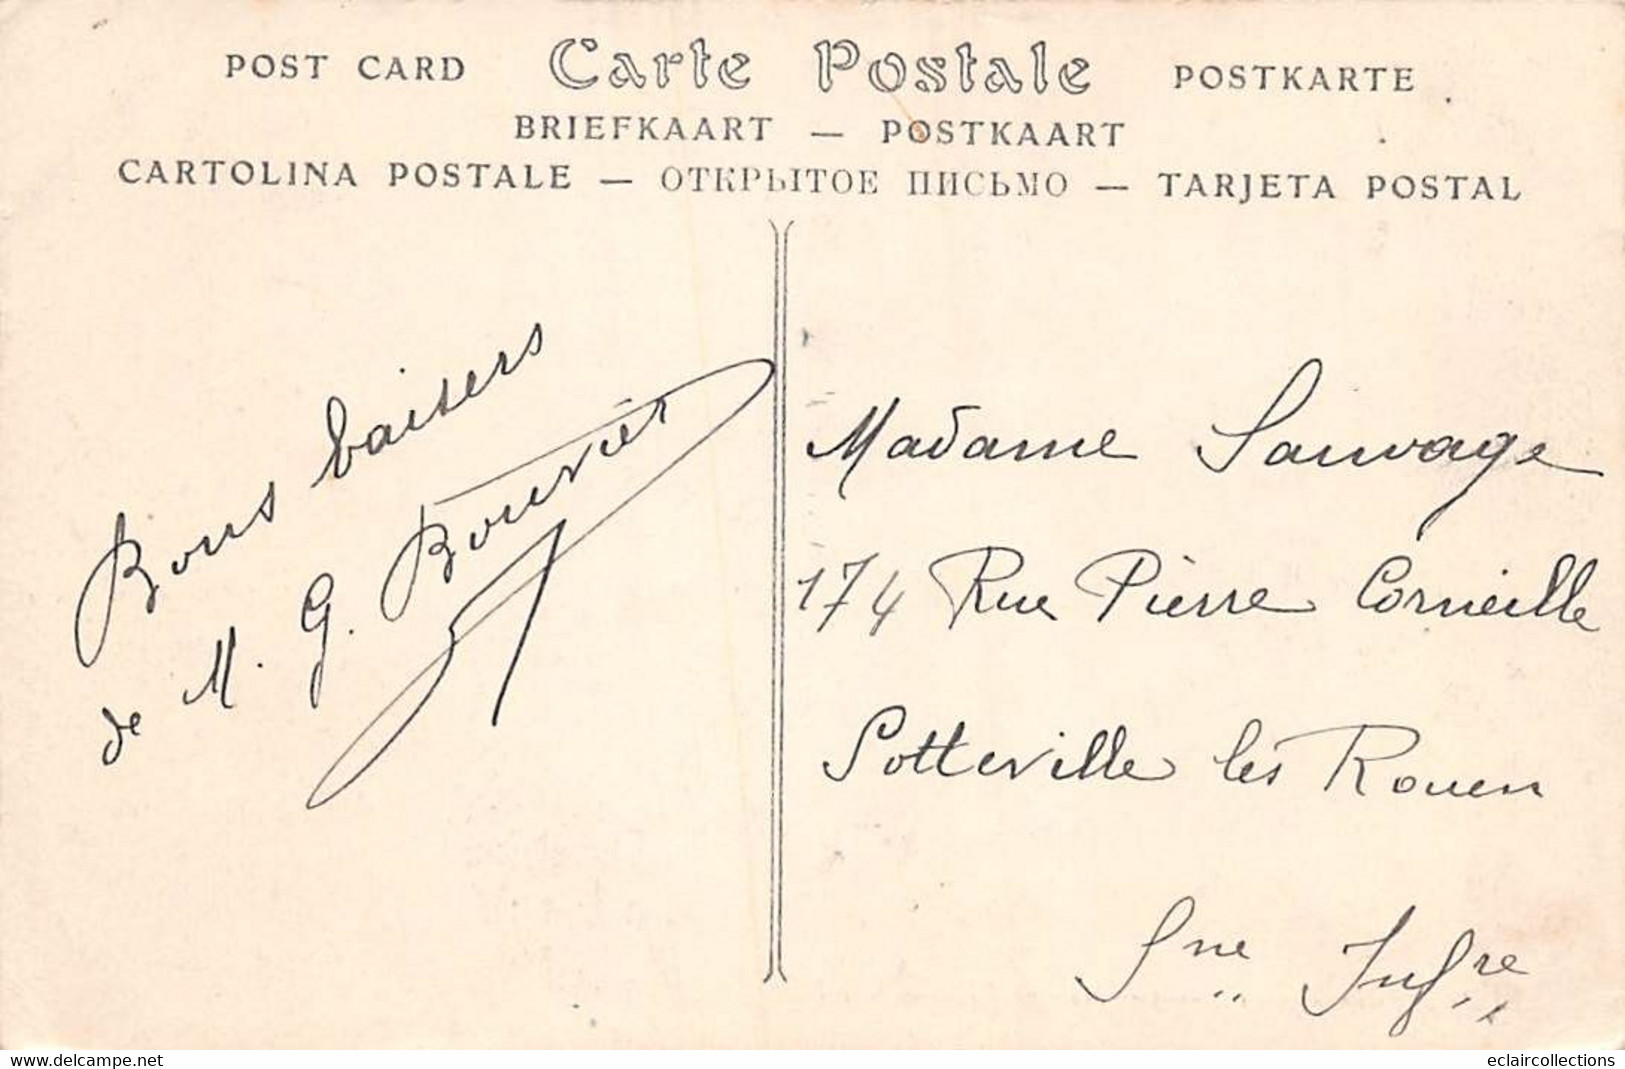 POST CARD Carte Postale POSTKARTE
BRIEFKAART — POSTKAART
CARTOLINA POSTALE — ОТКРЫТОЕ ПИСЬМО — TARJETA POSTAL
Bons baisers
de M. G. Bouvier
Madame Sauvage
174 Rue Pierre Corneille
Sotteville lès Rouen
Sne Infre
www.delcampe.net
eclaircollections